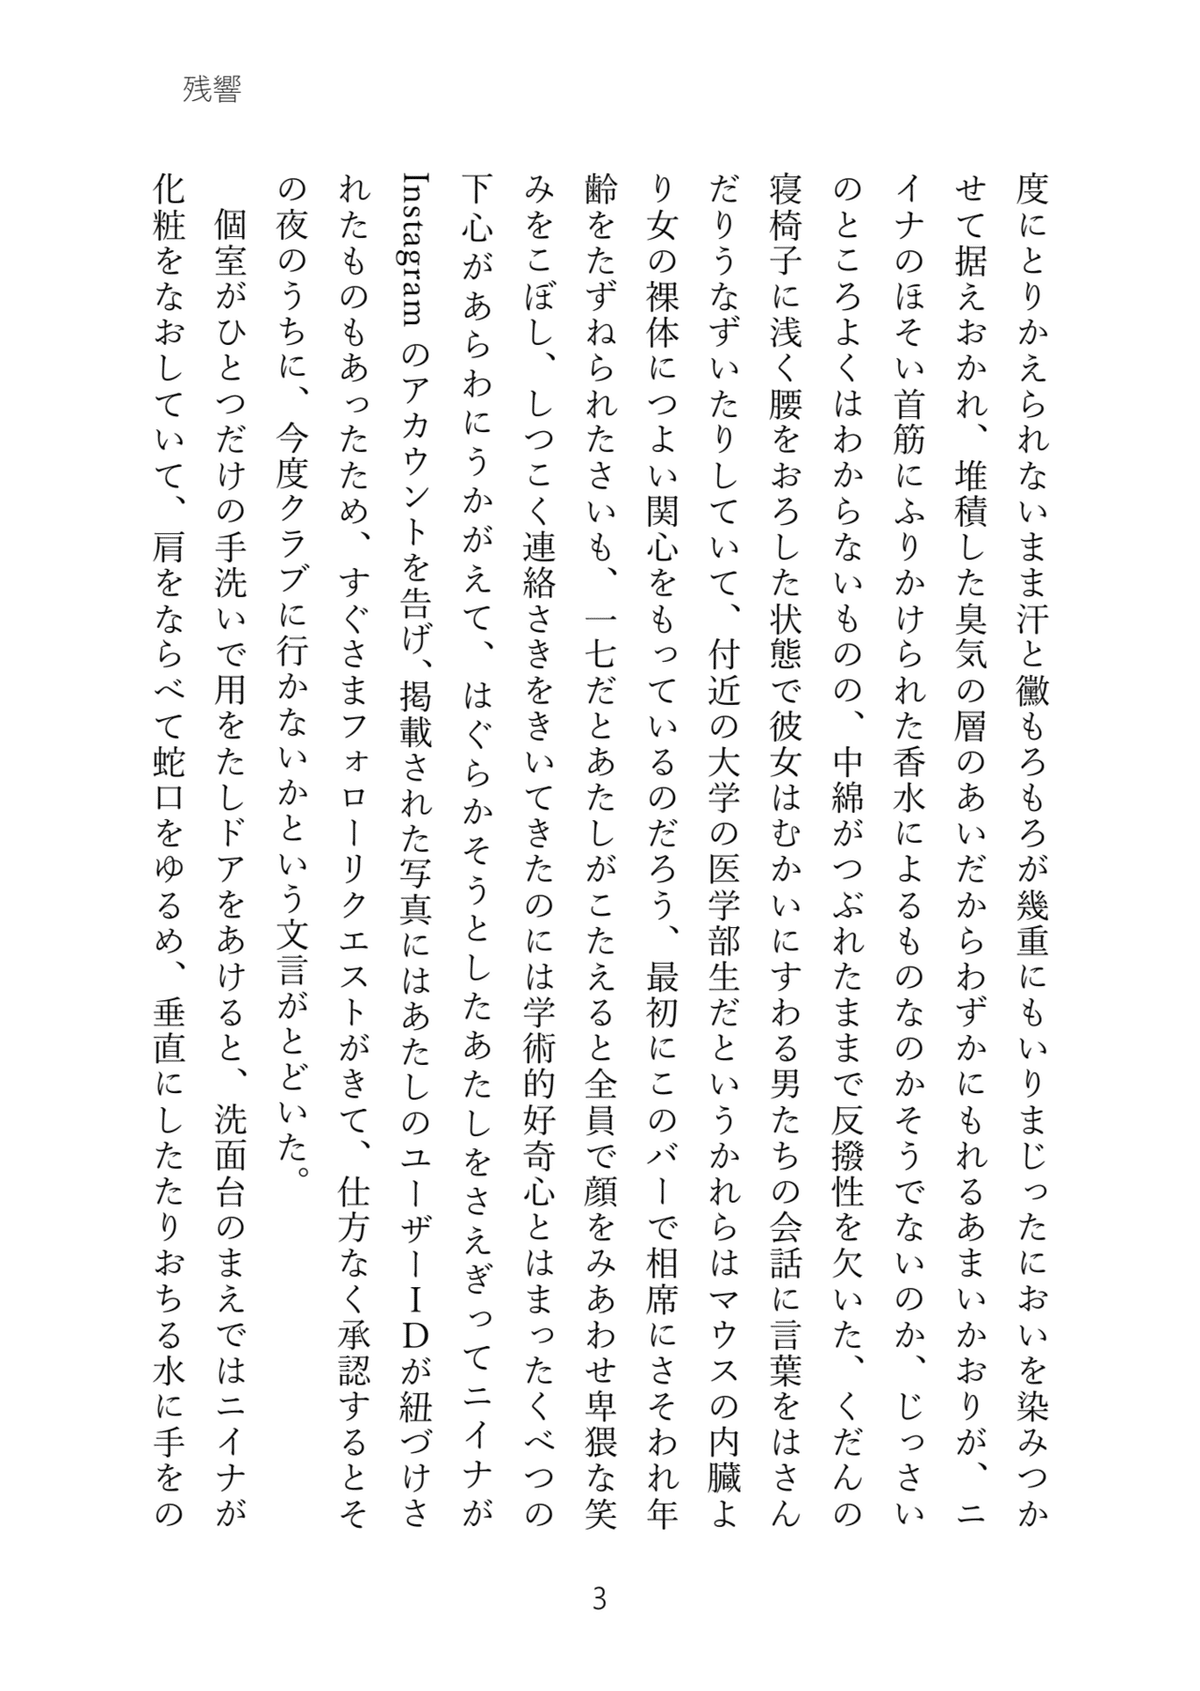 残響
度にとりかえられないまま汗と黴もろもろが幾重にもいりまじったにおいを染みつか
せて据えおかれ、堆積した臭気の層のあいだからわずかにもれるあまいかおりが、ニ
イナのほそい首筋にふりかけられた香水によるものなのかそうでないのか、じっさい
のところよくはわからないものの、中綿がつぶれたままで反撥性を欠いた、くだんの
寝椅子に浅く腰をおろした状態で彼女はむかいにすわる男たちの会話に言葉をはさん
だりうなずいたりしていて、付近の大学の医学部生だというかれらはマウスの内臓よ
り女の裸体につよい関心をもっているのだろう、最初にこのバーで相席にさそわれ年
齢をたずねられたさいも、一七だとあたしがこたえると全員で顔をみあわせ卑猥な笑
みをこぼし、しつこく連絡さきをきいてきたのには学術的好奇心とはまったくべつの
下心があらわにうかがえて、はぐらかそうとしたあたしをさえぎってニイナが
Instagram のアカウントを告げ、掲載された写真にはあたしのユーザーＩＤが紐づけさ
れたものもあったため、すぐさまフォローリクエストがきて、仕方なく承認するとそ
の夜のうちに、今度クラブに行かないかという文言がとどいた。
　個室がひとつだけの手洗いで用をたしドアをあけると、洗面台のまえではニイナが
化粧をなおしていて、肩をならべて蛇口をゆるめ、垂直にしたたりおちる水に手をの
3